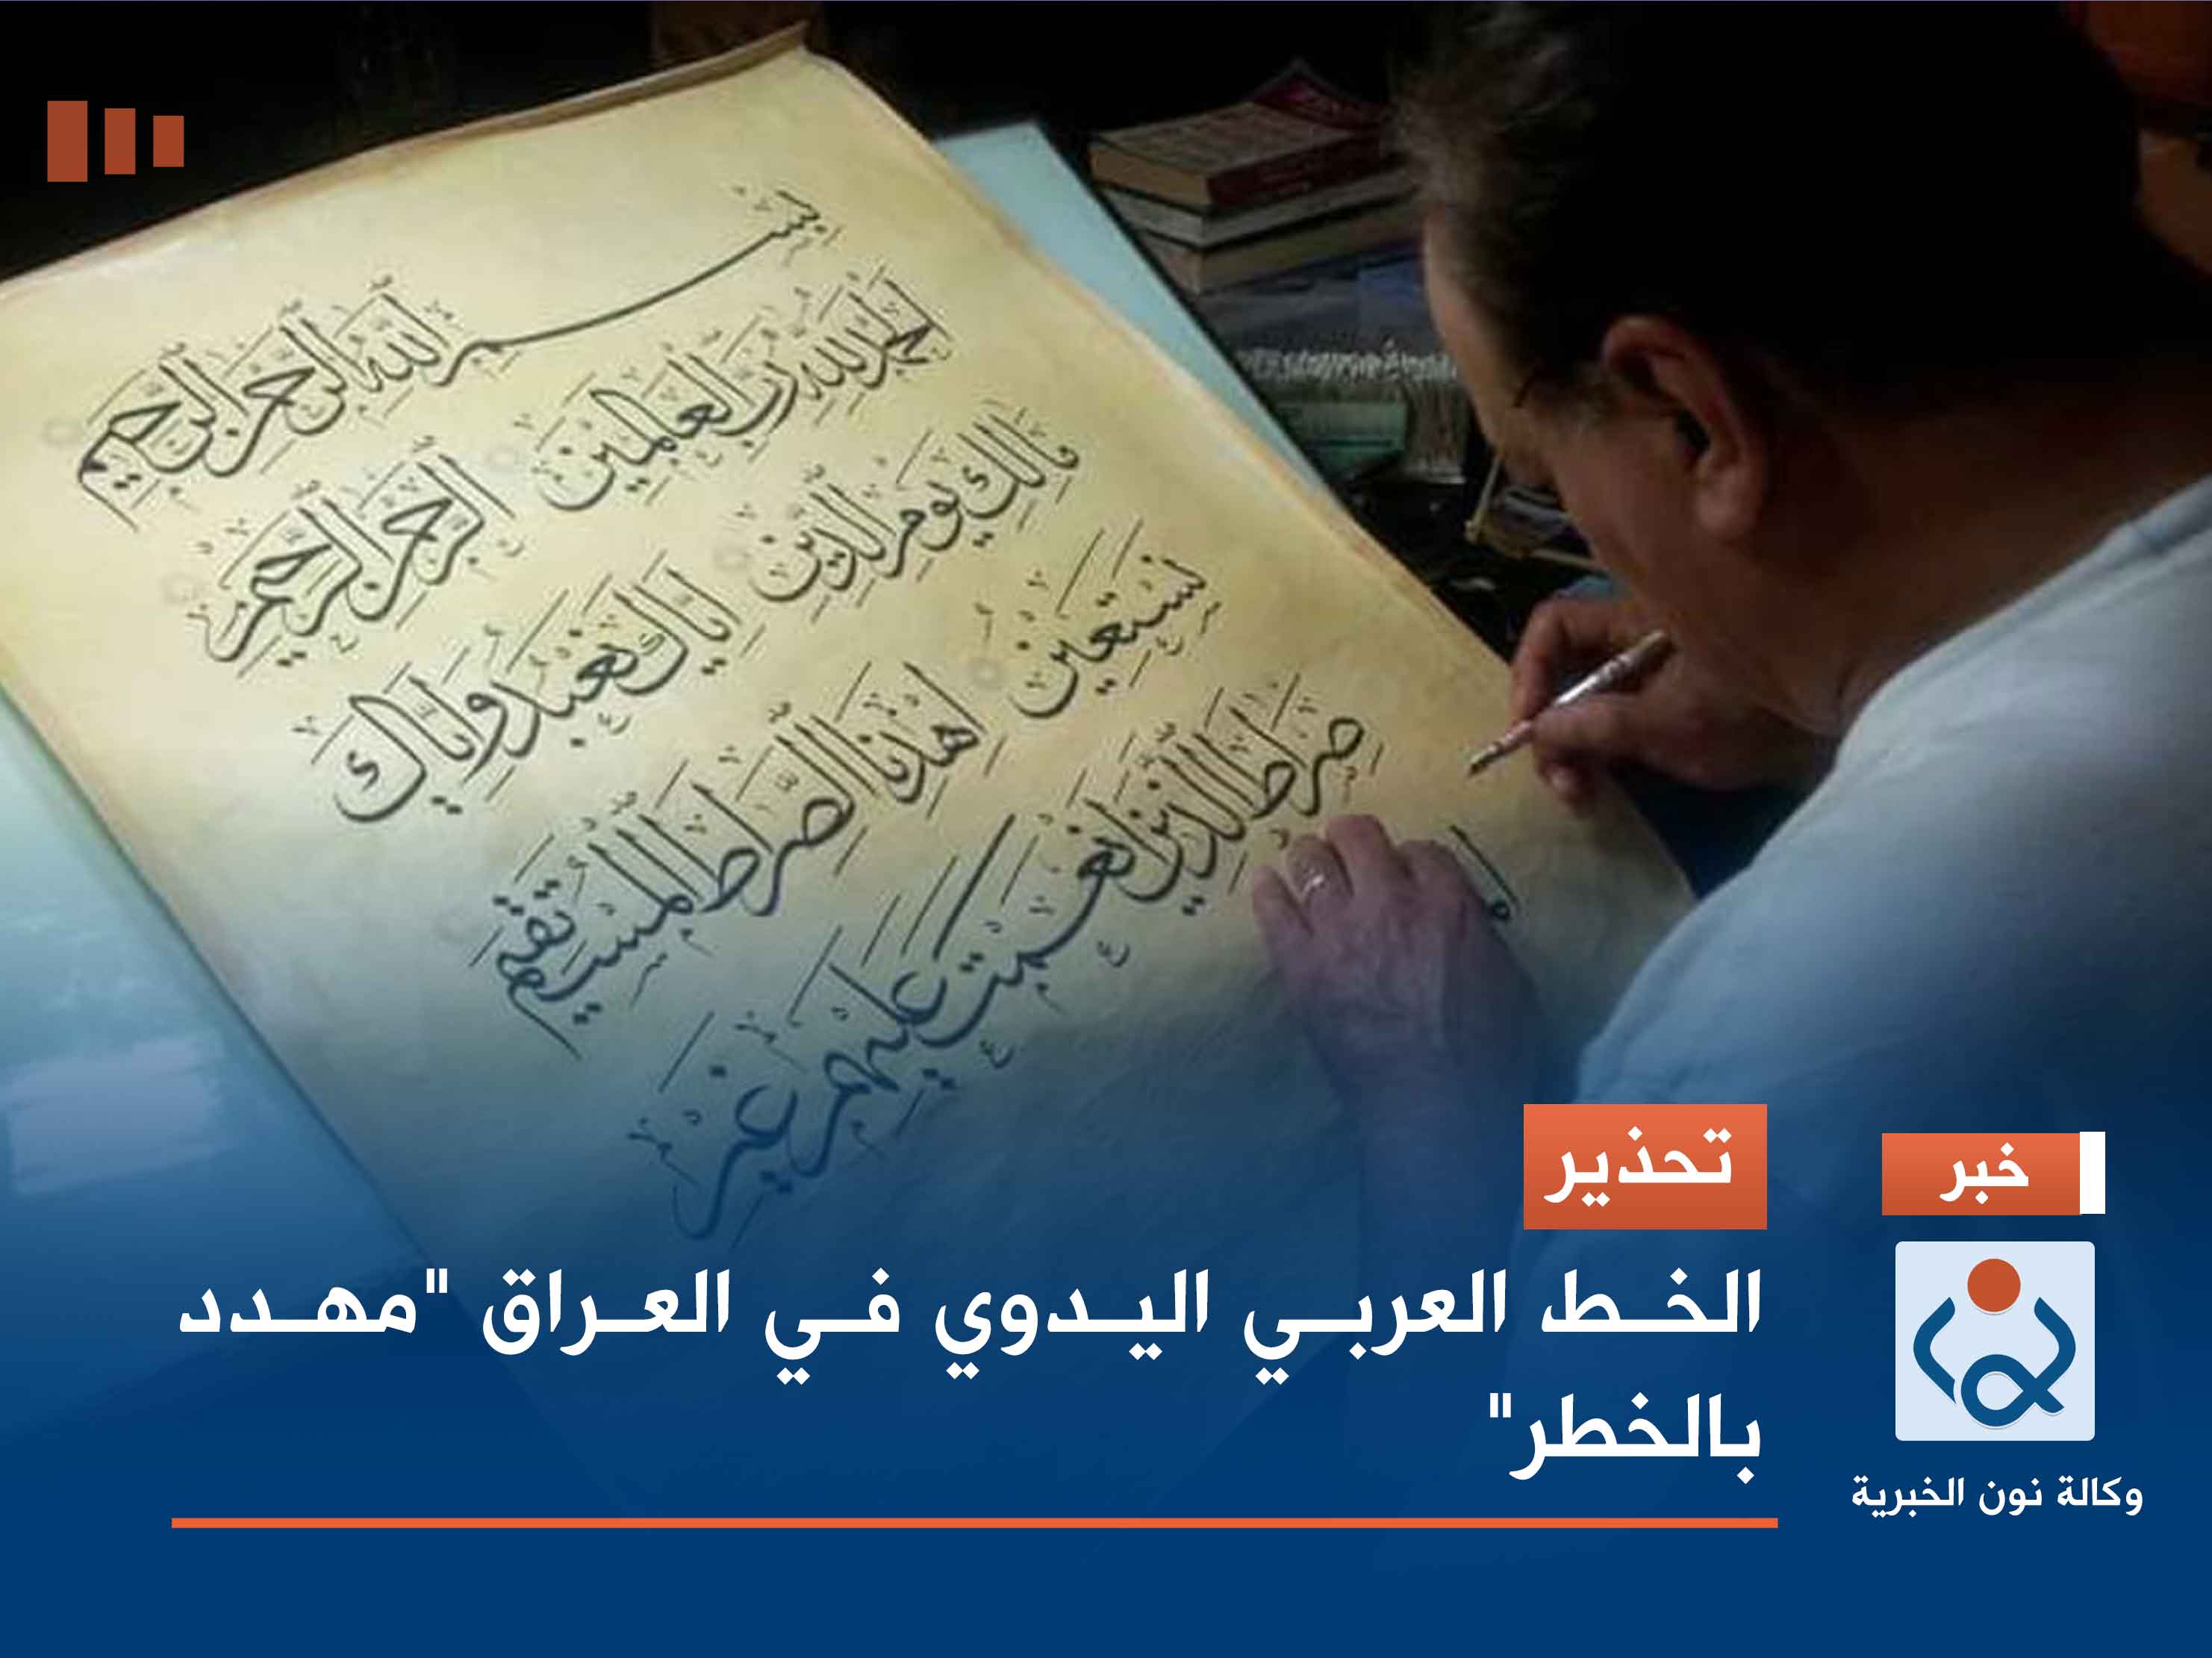 بسم الله الرحمن الرحيم
الحمد لله رب العالمين الرحمن الرحيم
مالك يوم الدين اياك نعبد واياك
نستعين اهدنا الصراط المستقيم
صراط الذين انعمت عليهم غير
تحذير
الخط العربي اليدوي في العراق "مهدد
بالخطر"
خبر
وكالة نون الخبرية